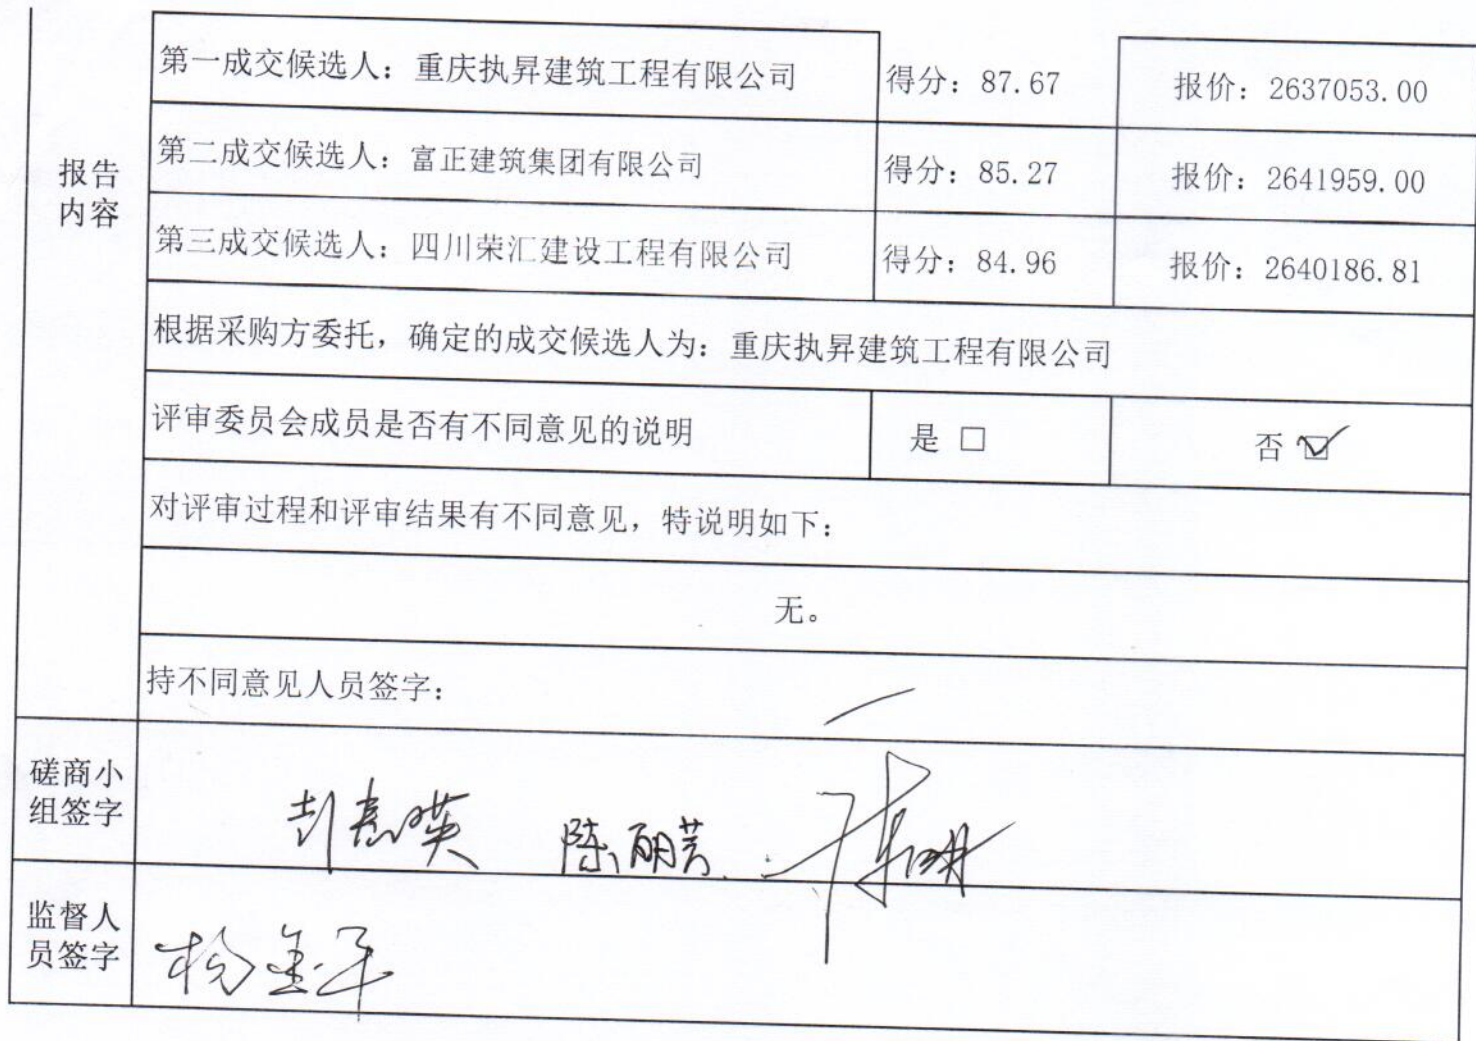 第一成交候选人：重庆执昇建筑工程有限公司 得分：87.67 报价：2637053.00
第二成交候选人：富正建筑集团有限公司 得分：85.27 报价：2641959.00
报告
内容
第三成交候选人：四川荣汇建设工程有限公司 得分：84.96 报价：2640186.81
根据采购方委托，确定的成交候选人为：重庆执昇建筑工程有限公司
评审委员会成员是否有不同意见的说明 是 □ 否 ☑
对评审过程和评审结果有不同意见，特说明如下：
无。
持不同意见人员签字：
磋商小
组签字
陈丽芳
监督人
员签字
杨金平